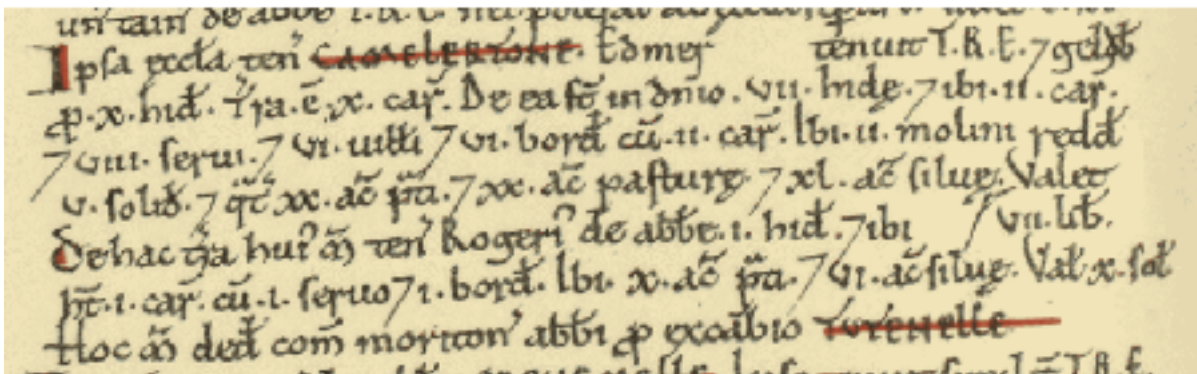 Ipsa eccła ten̄ CAMELERTONE. Edmer tenuit T.R.E. ⁊ geldb̄
p. x. hid̄. T̄ra. ē. x. car̄. De ea st̄ in dn̄io. vii. hidę. ⁊ ibi. ii. car̄.
⁊ viii. serui. ⁊ vi. uiłłi ⁊ vi. bord̄ cū. ii. car̄. Ibi. ii. molini redd̄
v. solid̄. ⁊ qͭ xx. ac̄ p̄ti. ⁊ xx. ac̄ pasturę. ⁊ xl. ac̄ siluę. Valet
De hac t̄ra hui' m̄ ten̄ Rogeri' de abb̄e. i. hid̄. ⁊ ibi vii. lib̄.
ht̄. i. car̄. cū. i. seruo ⁊ i. bord̄. Ibi. x. ac̄ p̄ti. ⁊ vi. ac̄ siluę. Val̄ x. sol̄
Hoc m̄ ded̄ com̄ moriton' abb̄i p excābio